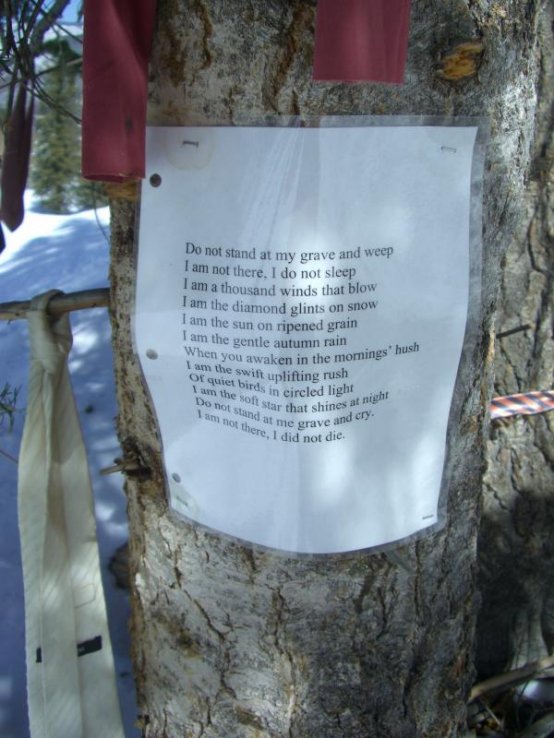 Do not stand at my grave and weep
I am not there, I do not sleep
I am a thousand winds that blow
I am the diamond glints on snow
I am the sun on ripened grain
I am the gentle autumn rain
When you awaken in the mornings' hush
I am the swift uplifting rush
Of quiet birds in circled light
I am the soft star that shines at night
Do not stand at me grave and cry.
I am not there, I did not die.